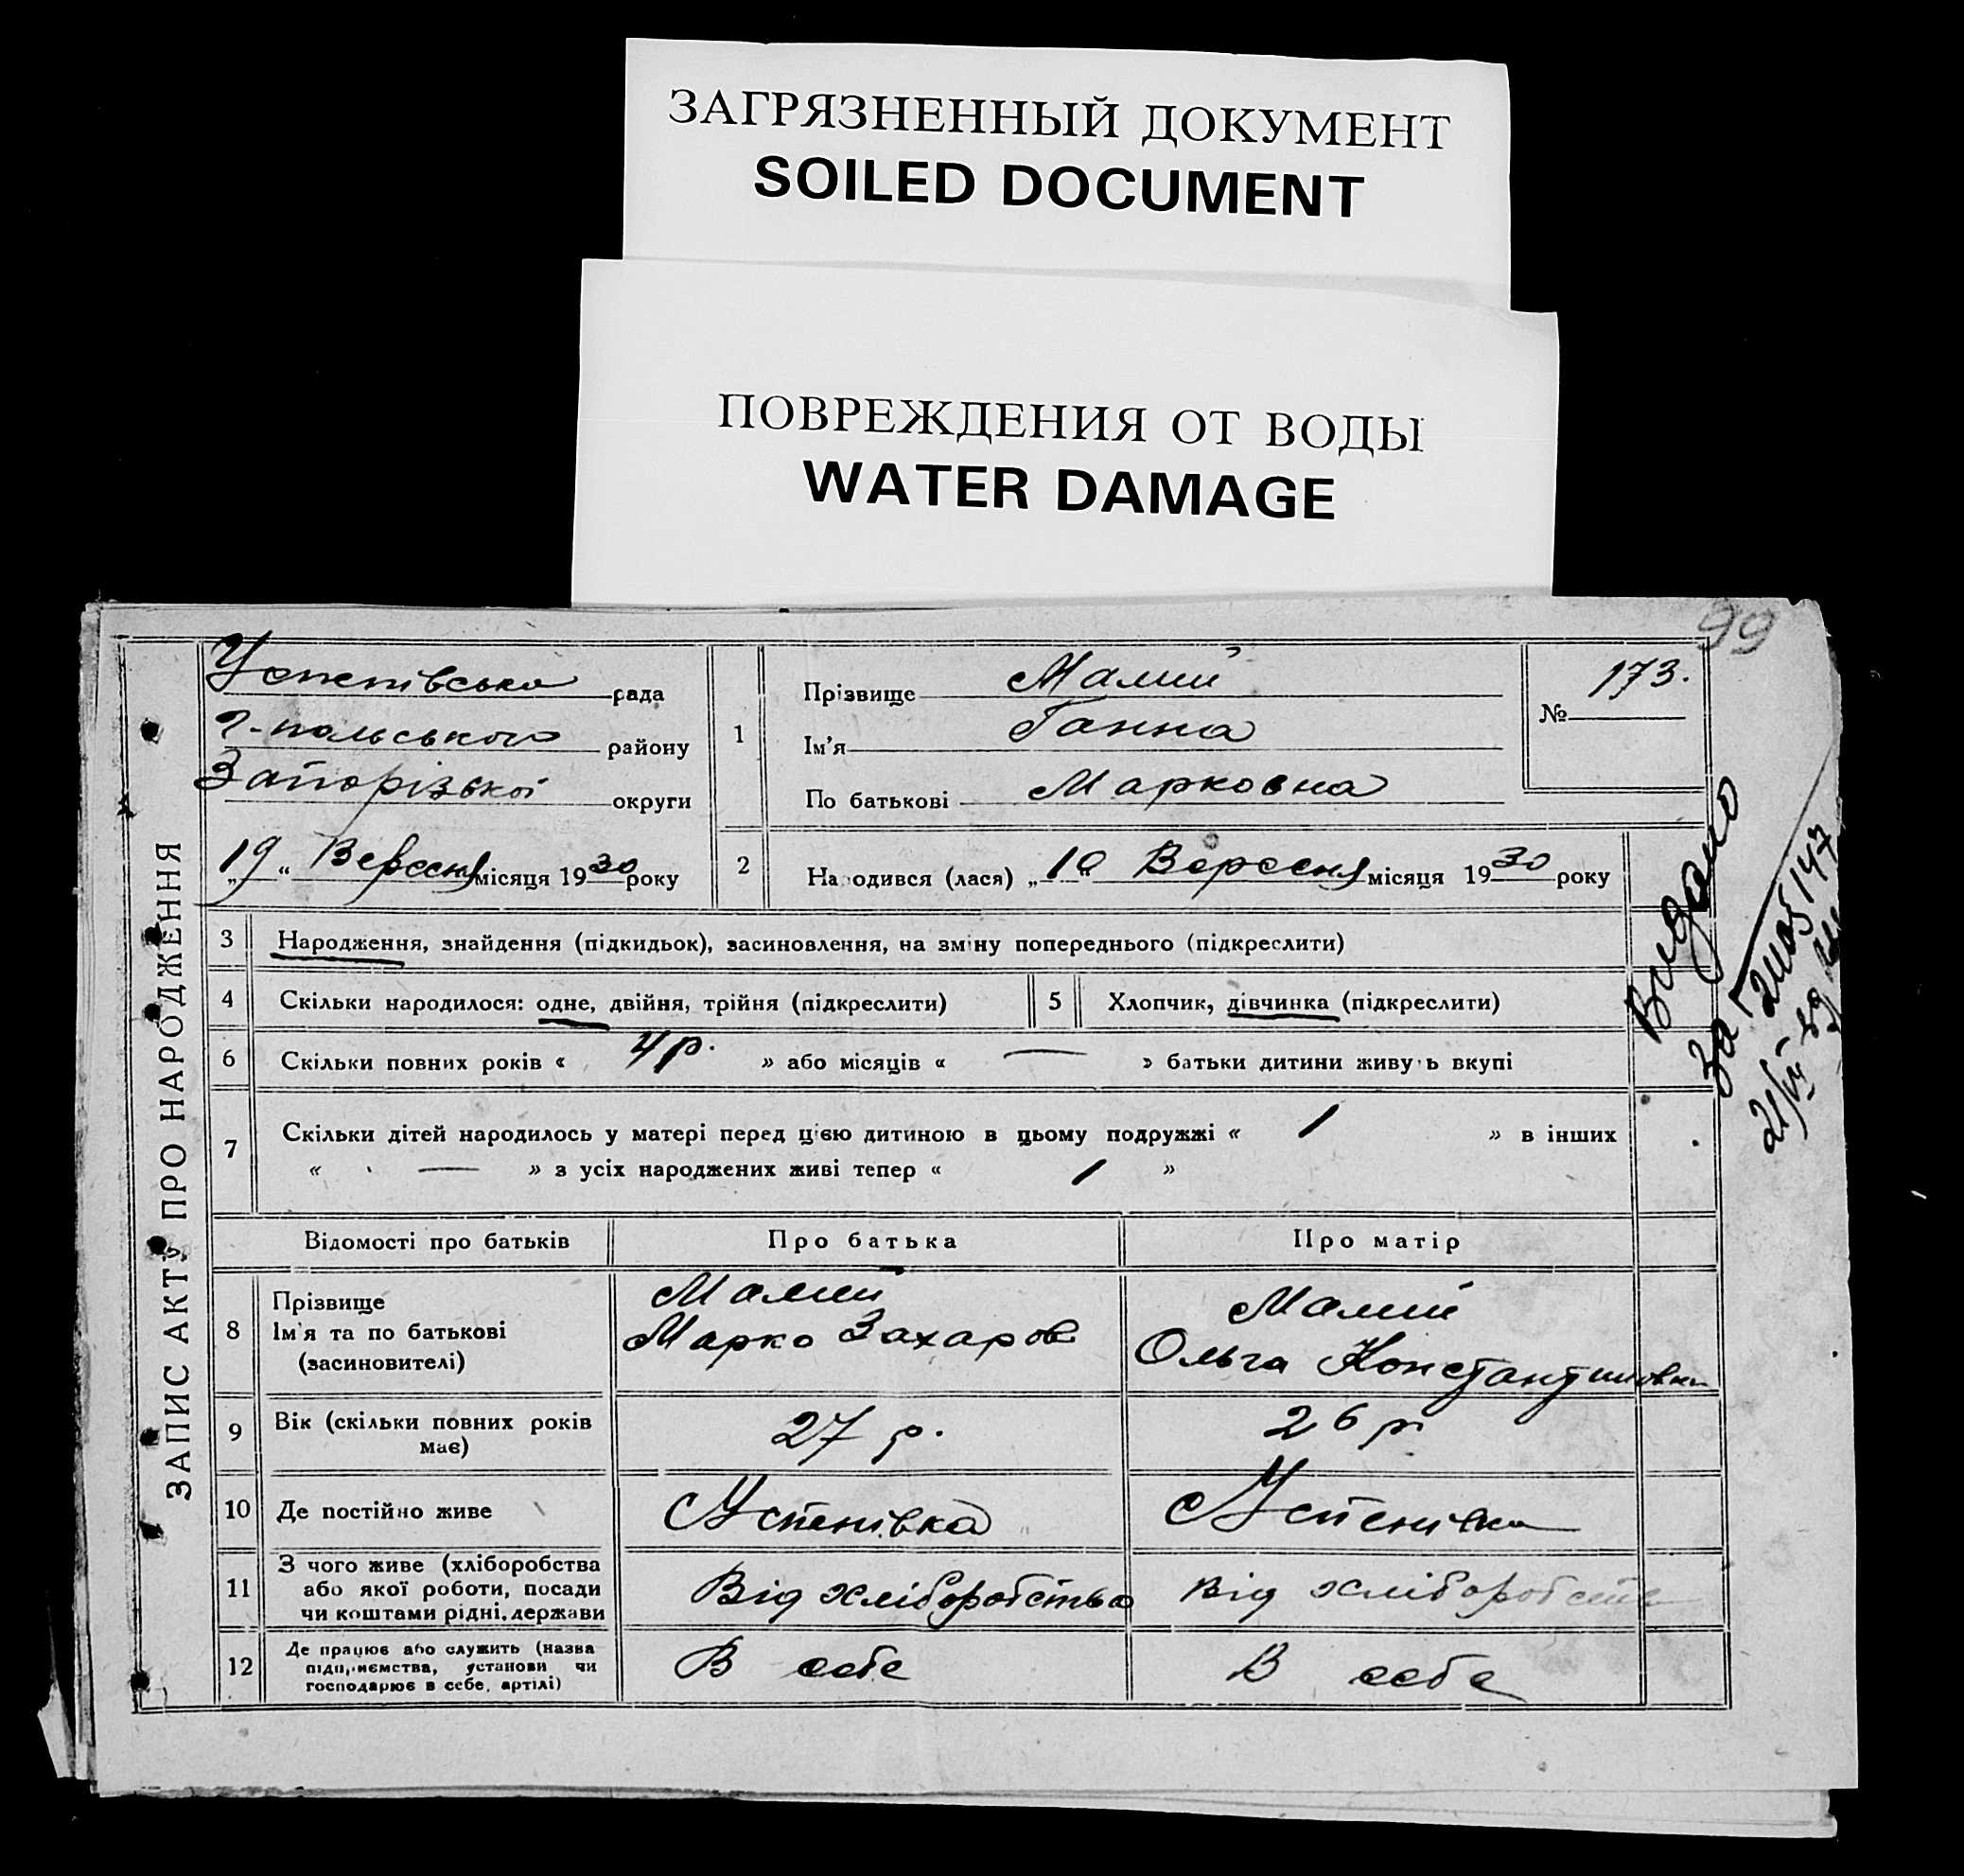 ЗАГРЯЗНЕННЫЙ ДОКУМЕНТ
SOILED DOCUMENT
ПОВРЕЖДЕНИЯ ОТ ВОДЫ
WATER DAMAGE
99
ЗАПИС АКТУ ПРО НАРОДЖЕННЯ
Успенівська рада
Г-польського району
Запорізької округи
„19“ Вересня місяця 1930 року
1
Прізвище Малий
Ім'я Ганна
По батькові Марковна
№ 173.
2 Народився (лася) „10“ Вересня місяця 1930 року
3 Народження, знайдення (підкидьок), засиновлення, на зміну попереднього (підкреслити)
4 Скільки народилося: одне, двійня, трійня (підкреслити) 5 Хлопчик, дівчинка (підкреслити)
6 Скільки повних років « 4 р. » або місяців « — » батьки дитини живуть вкупі
7 Скільки дітей народилось у матері перед цією дитиною в цьому подружжі « 1 » в інших
« — » з усіх народжених живі тепер « 1 »
Відомості про батьків Про батька Про матір
8 Прізвище
Ім'я та по батькові
(засиновителі)
Малий
Марко Захаров
Малий
Ольга Константиновна
9 Вік (скільки повних років
має)
27 р. 26 р.
10 Де постійно живе Успенівка Успенівка
11 З чого живе (хліборобства
або якої роботи, посади
чи коштами рідні, держави
Від хліборобства Від хліборобства
12 Де працює або служить (назва
підприємства, установи чи
господарює в себе, артілі)
В себе В себе
Видано
за